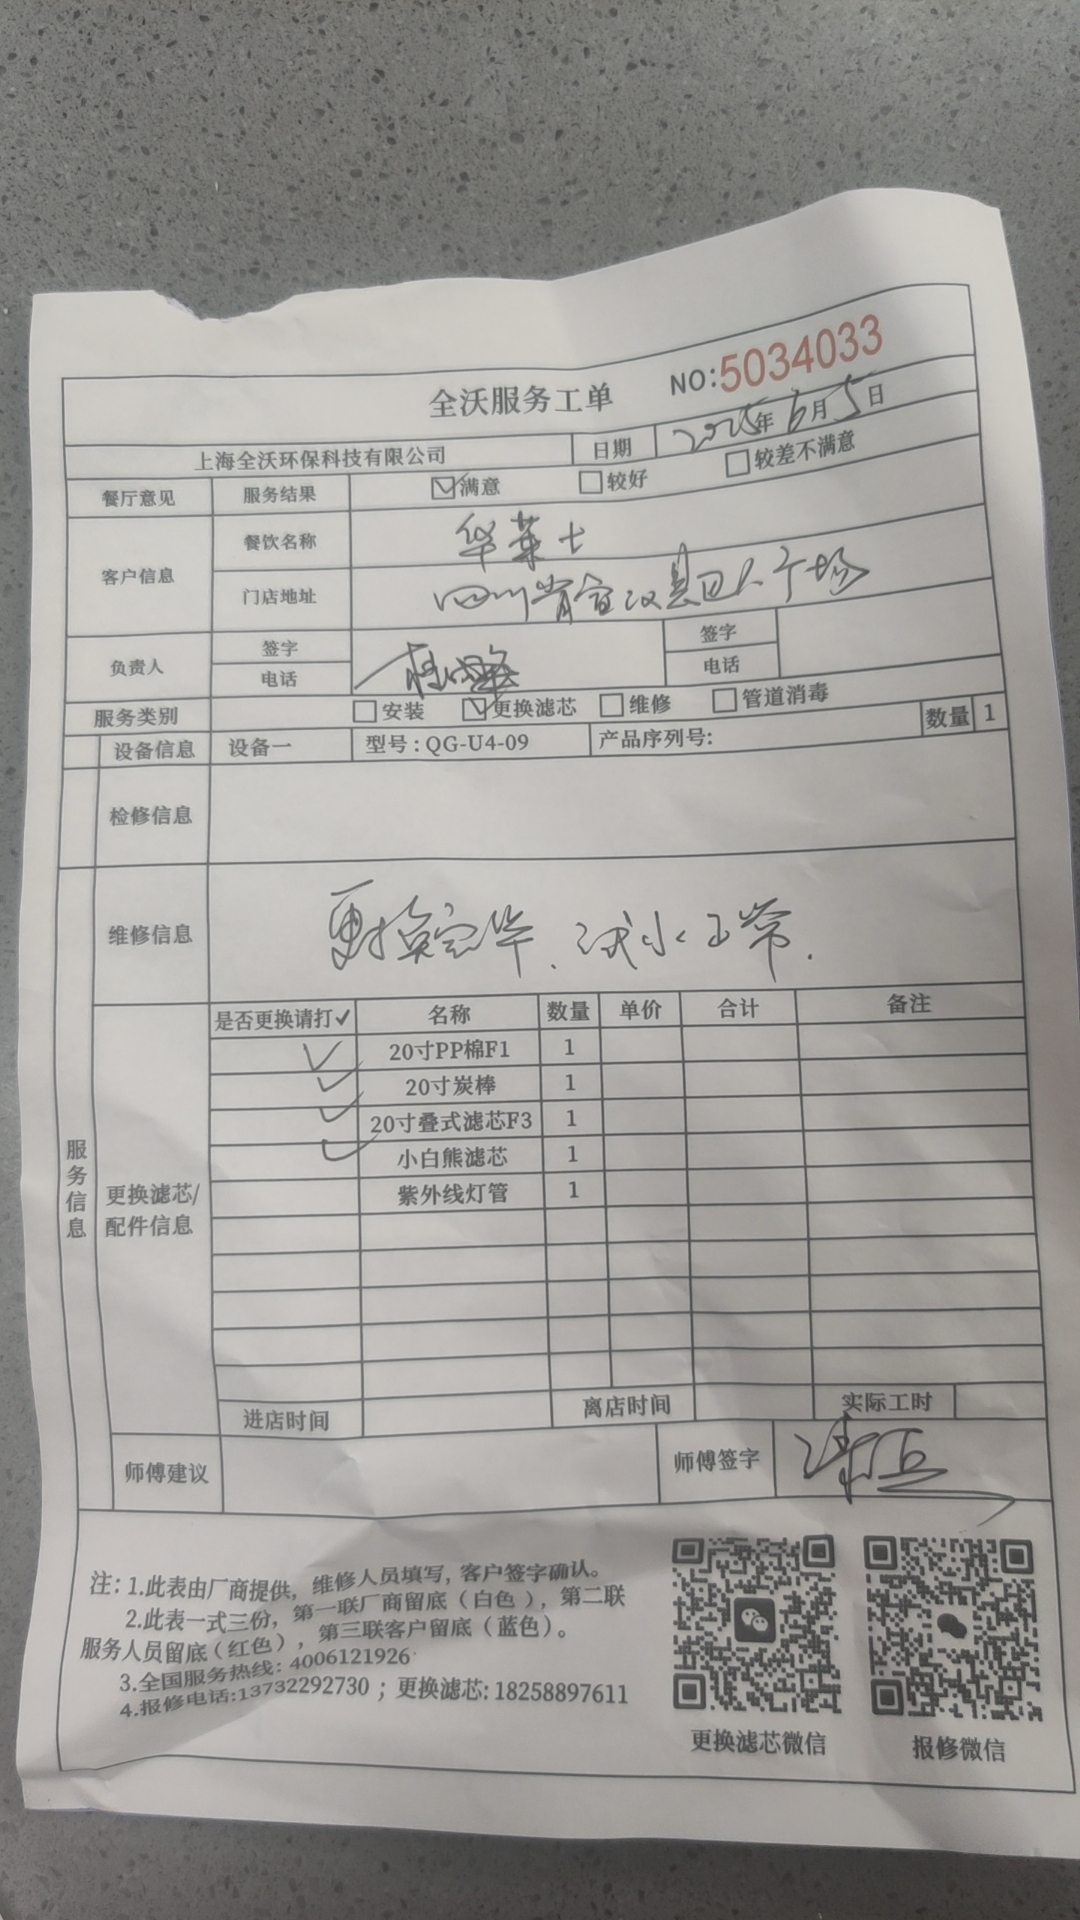 全沃服务工单 NO:5034033
上海全沃环保科技有限公司 日期 2025年6月5日
餐厅意见 服务结果 满意 较好 较差不满意
客户信息 餐饮名称 华莱士
门店地址 四川省宣汉县巴人广场
负责人 签字 签字
电话 电话
服务类别 安装 更换滤芯 维修 管道消毒
设备信息 设备一 型号：QG-U4-09 产品序列号: 数量 1
检修信息
维修信息 更换完毕、试水正常.
服务信息
更换滤芯/配件信息
是否更换请打✓ 名称 数量 单价 合计 备注
✓ 20寸PP棉F1 1
✓ 20寸炭棒 1
✓ 20寸叠式滤芯F3 1
✓ 小白熊滤芯 1
紫外线灯管 1
进店时间 离店时间 实际工时
师傅建议 师傅签字
注：1.此表由厂商提供，维修人员填写，客户签字确认。
2.此表一式三份，第一联厂商留底（白色），第二联
服务人员留底（红色），第三联客户留底（蓝色）。
3.全国服务热线：4006121926
4.报修电话:13732292730；更换滤芯: 18258897611
更换滤芯微信 报修微信